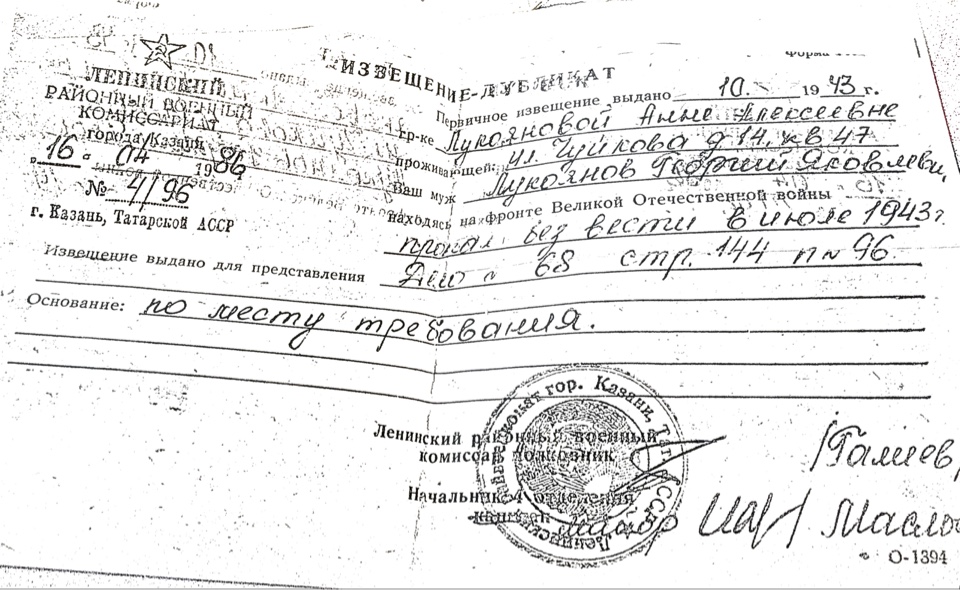 ИЗВЕЩЕНИЕ-ДУБЛИКАТ
Форма
ЛЕНИНСКИЙ
РАЙОННЫЙ ВОЕННЫЙ
КОМИССАРИАТ
города Казани
"16" 04 1986
№ 4/96
г. Казань, Татарской АССР
Первичное извещение выдано 10. 1943 г.
гр-ке Лукояновой Анне Алексеевне
проживающей: ул. Чуйкова д 14, кв 47
Ваш муж Лукоянов Георгий Яковлеви
находясь на фронте Великой Отечественной войны
пропал без вести в июле 1943г
Дело № 68 стр. 144 п № 96.
Извещение выдано для представления
Основание: по месту требования.
Ленинский районный военный
комиссар полковник
/Галиев
Начальник 4 отделения
майор
О-1394